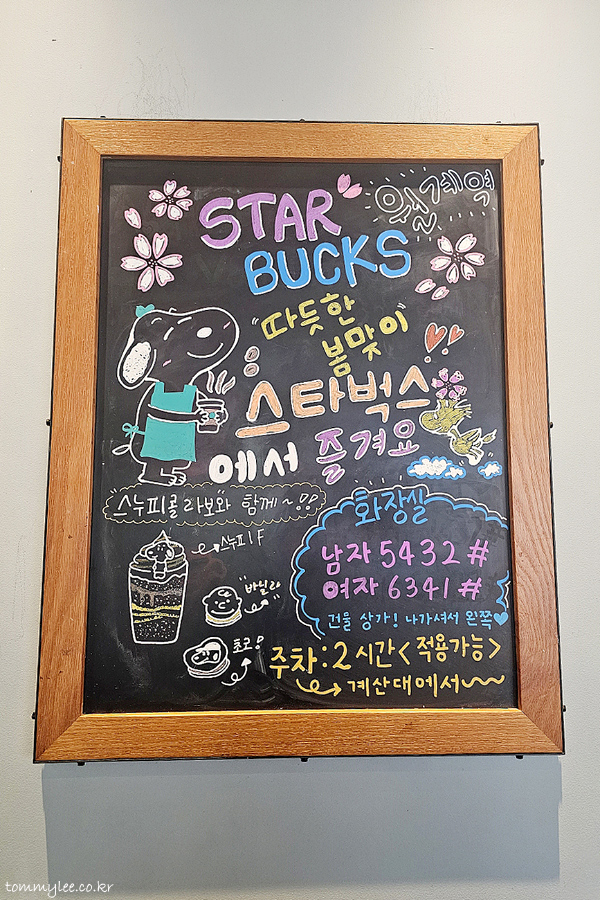 STAR
원계역
BUCKS
"따뜻한
봄맞이"
스타벅스
에서 즐겨요
"스누피콜라보와 함께~!!
스누피 F
"바닐라
초코!
화장실
남자 5432#
여자 6341#
건물 상가! 나가셔서 왼쪽
주차: 2시간 <적용가능>
계산대에서
tommylee.co.kr